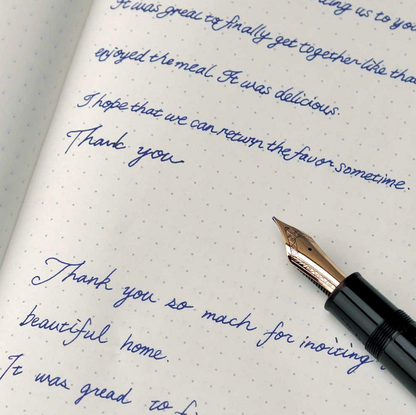 ing us to you
It was great to finally get together like tha
enjoyed the meal. It was delicious.
I hope that we can return the favor sometime.
Thank you
Thank you so mach for inoiting
beautiful home.
It was gread to fi